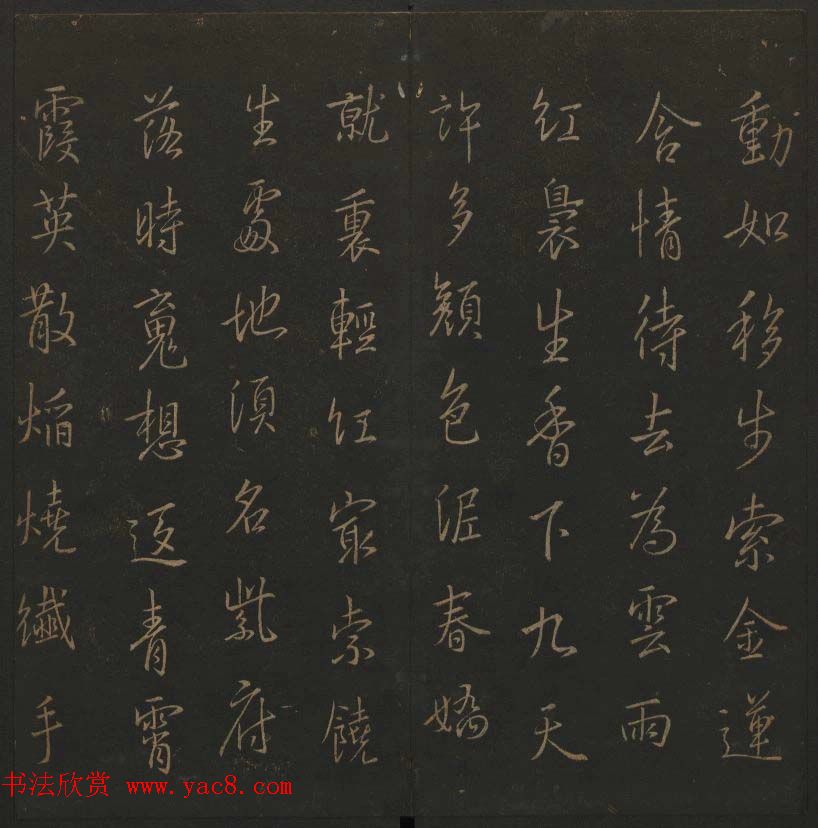 動如移步索金蓮
含情待去為雲雨
紅裊生香下九天
許多顏色泥春嬌
就裏輕紅最索饒
生處地須名紫府
落時䰟想返青霄
霞英散焰燒纖手
书法欣赏 www.yac8.com